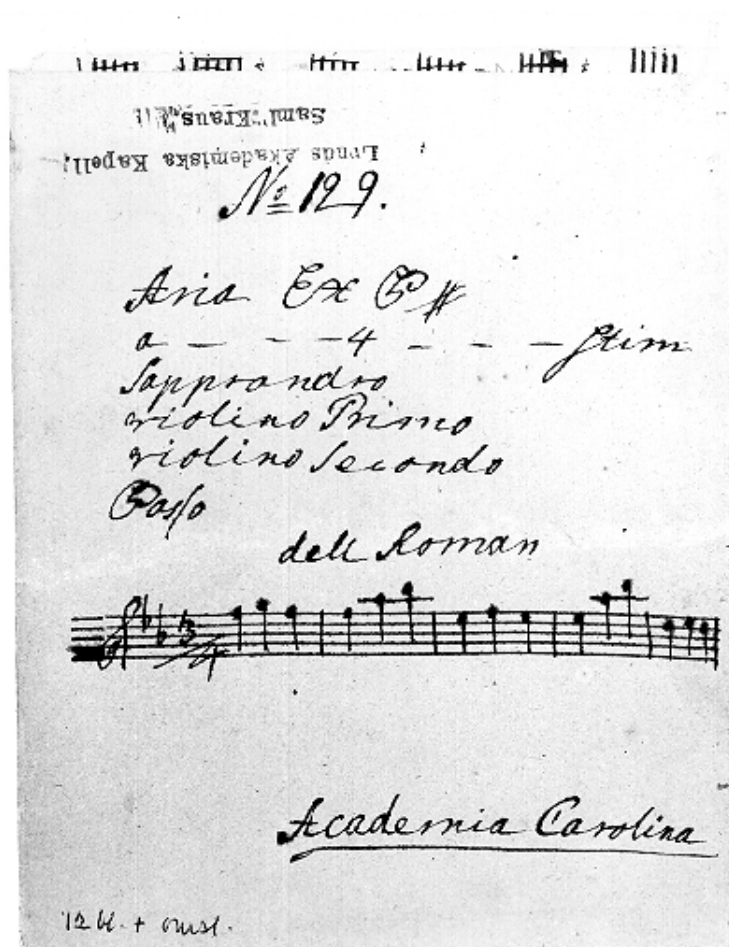 Saml "Kraus"
Lunds Akademiska Kapell,
No 129.
Aria Ex B #
a — — — 4 — — — — Stim
Sapprandro
violino Primo
violino Secondo
Basso
dell Roman
3/4
Academia Carolina
12 bl. + omsl.